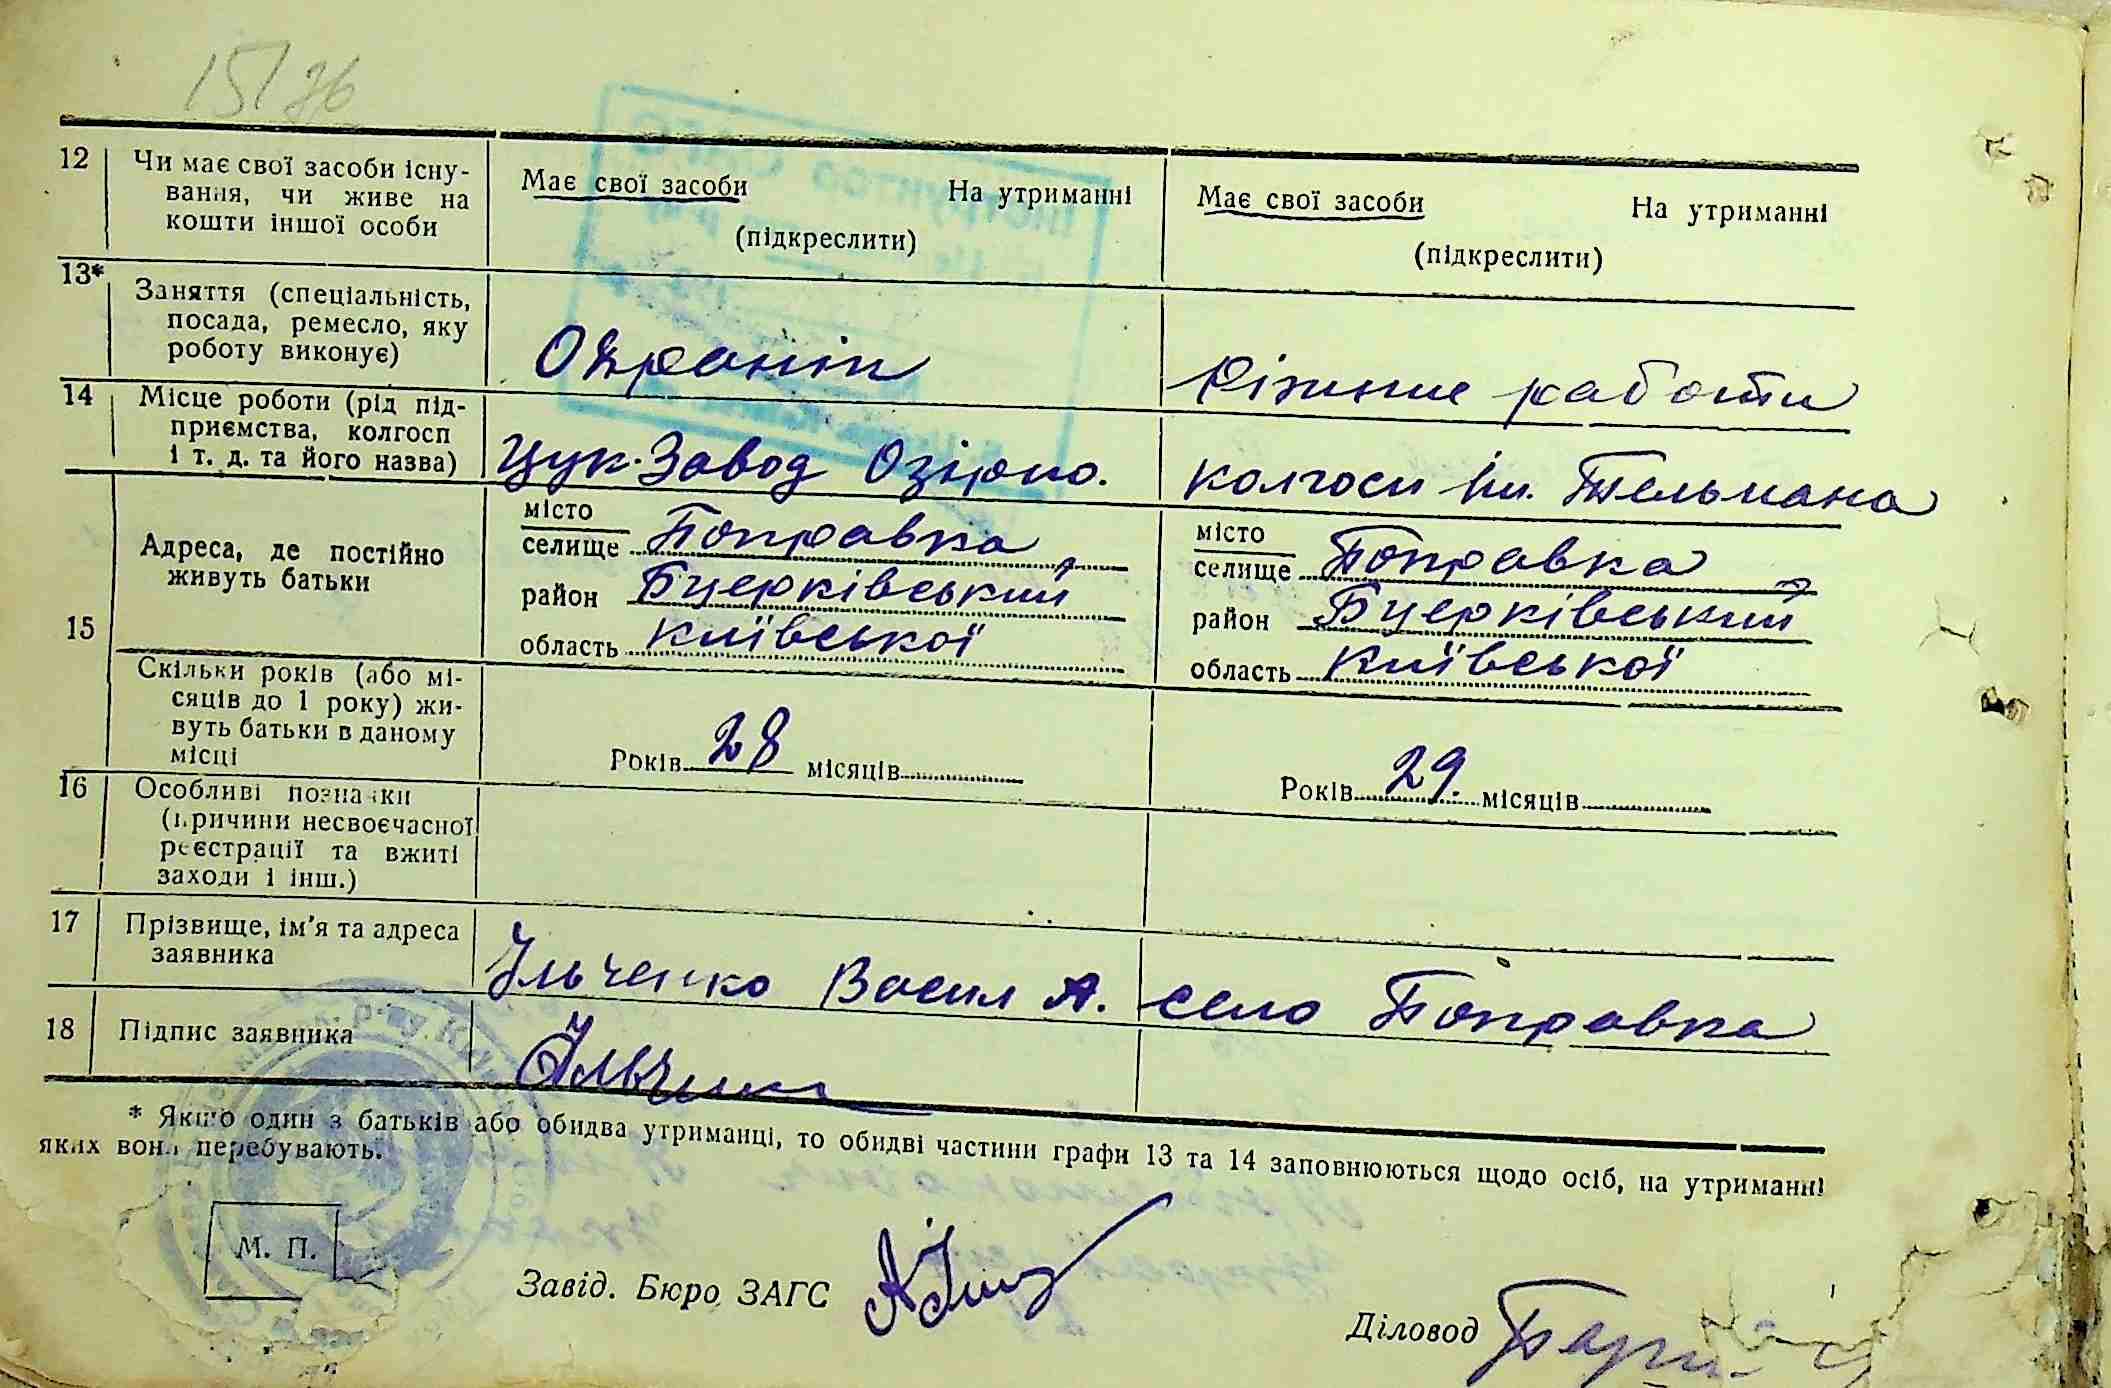 15/36
12 Чи має свої засоби існу-
вання, чи живе на
кошти іншої особи
Має свої засоби На утриманні
(підкреслити)
Має свої засоби На утриманні
(підкреслити)
13* Заняття (спеціальність,
посада, ремесло, яку
роботу виконує)
Охранік
Ріжние работи
14 Місце роботи (рід під-
приємства, колгосп
і т. д. та його назва)
Цук. Завод Озірно.
колгосп ім. Тельмана
15 Адреса, де постійно
живуть батьки
місто
селище Поправка
район Бцерківський
область Київської
місто
селище Поправка
район Бцерківський
область Київської
Скільки років (або мі-
сяців до 1 року) жи-
вуть батьки в даному
місці
Років 28 місяців
Років 29. місяців
16 Особливі познаки
(причини несвоєчасної
реєстрації та вжиті
заходи і інш.)
17 Прізвище, ім'я та адреса
заявника
Ільченко Васил А. село Поправка
18 Підпис заявника
Ільченко
* Якщо один з батьків або обидва утриманці, то обидві частини графи 13 та 14 заповнюються щодо осіб, на утриманні
яких вони перебувають.
М. П.
Завід. Бюро ЗАГС
Діловод